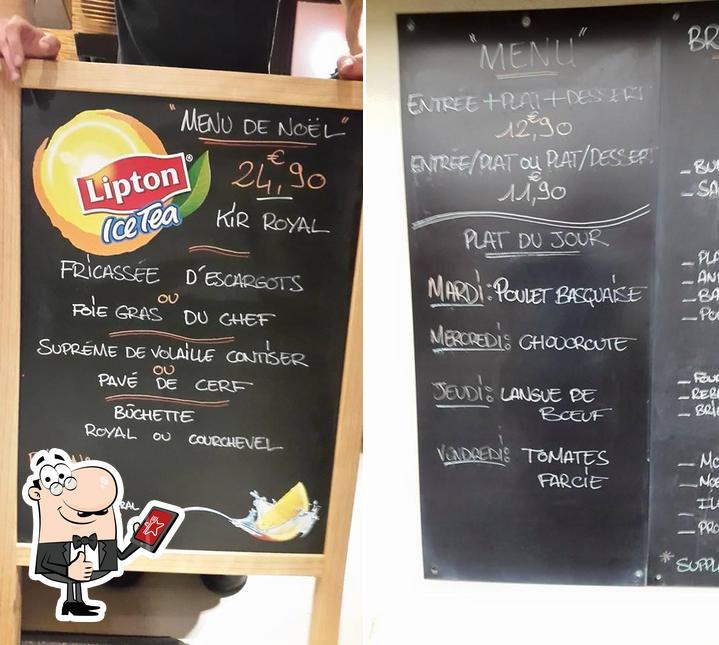 "MENU DE NOËL"
Lipton®
Ice Tea
24,90 €
KIR ROYAL
FRICASSÉE D'ESCARGOTS
OU
FOIE GRAS DU CHEF
SUPRÉME DE VOLAILLE CONTISER
OU
PAVÉ DE CERF
BÛCHETTE
ROYAL OU COURCHEVEL
"MENU"
ENTREE+PLAT+DESSERT
12,90 €
ENTRÉE/PLAT OU PLAT/DESSERT
11,90 €
PLAT DU JOUR
MARDI: POULET BASQUAISE
MERCREDI: CHOUCROUTE
JEUDI: LANGUE DE
BŒUF
VENDREDI: TOMATES
FARCIE